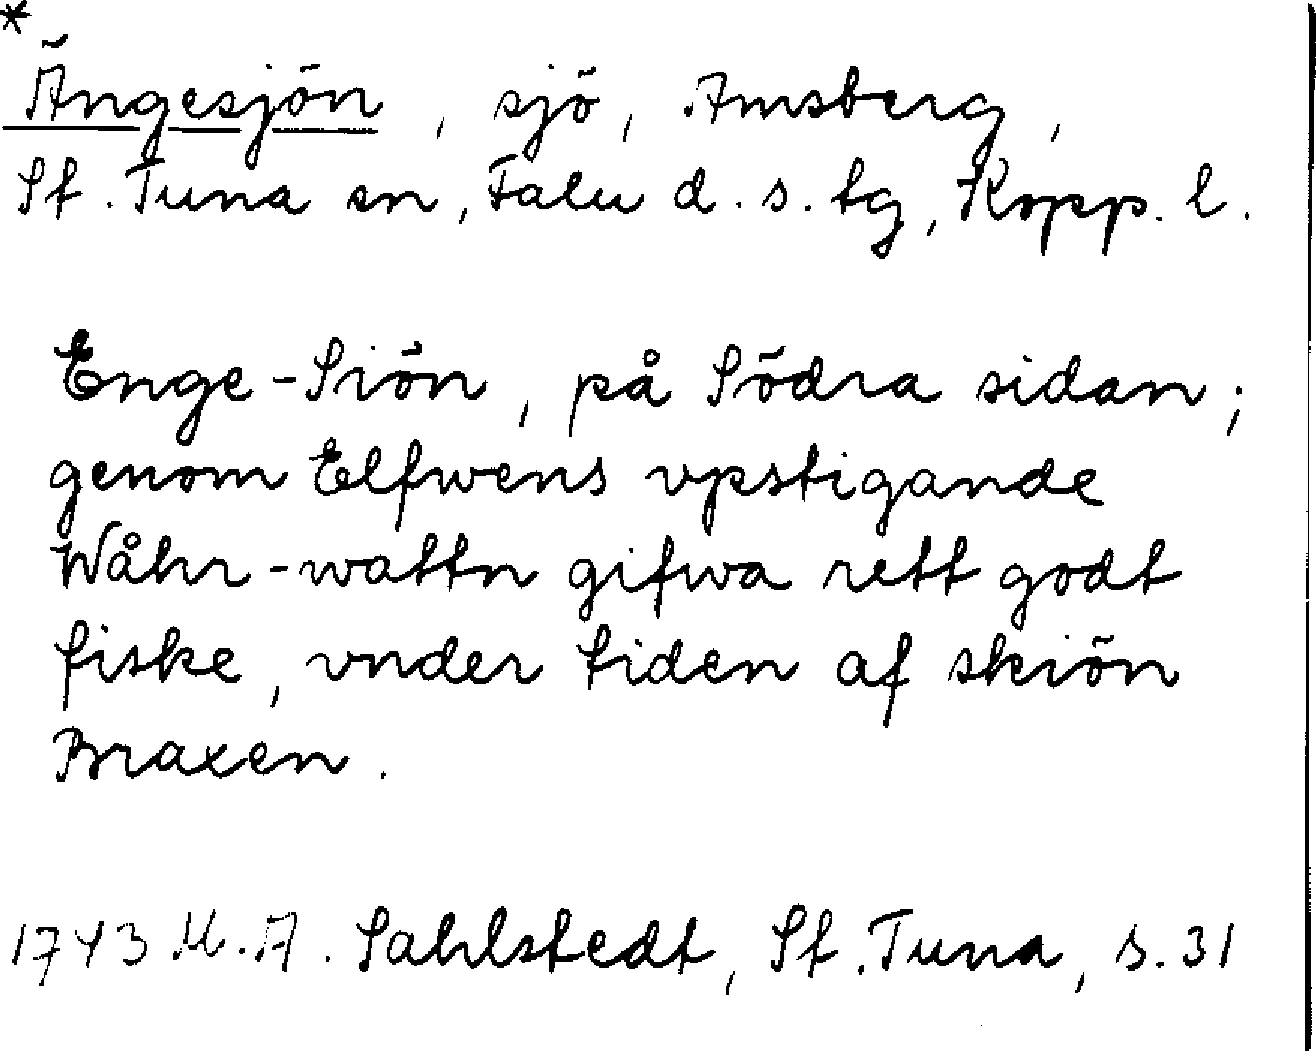 *
Ängesjön, sjö, Amsberg,
St. Tuna sn, Falu d. s. tg, Kopp. l.
Enge-Siön, på Södra sidan;
genom Elfwens vpstigande
Wåhr-wattn gifwa rett godt
fiske, vnder tiden af skiön
Braxen.
1743 M. A. Sahlstedt, St. Tuna, s. 31